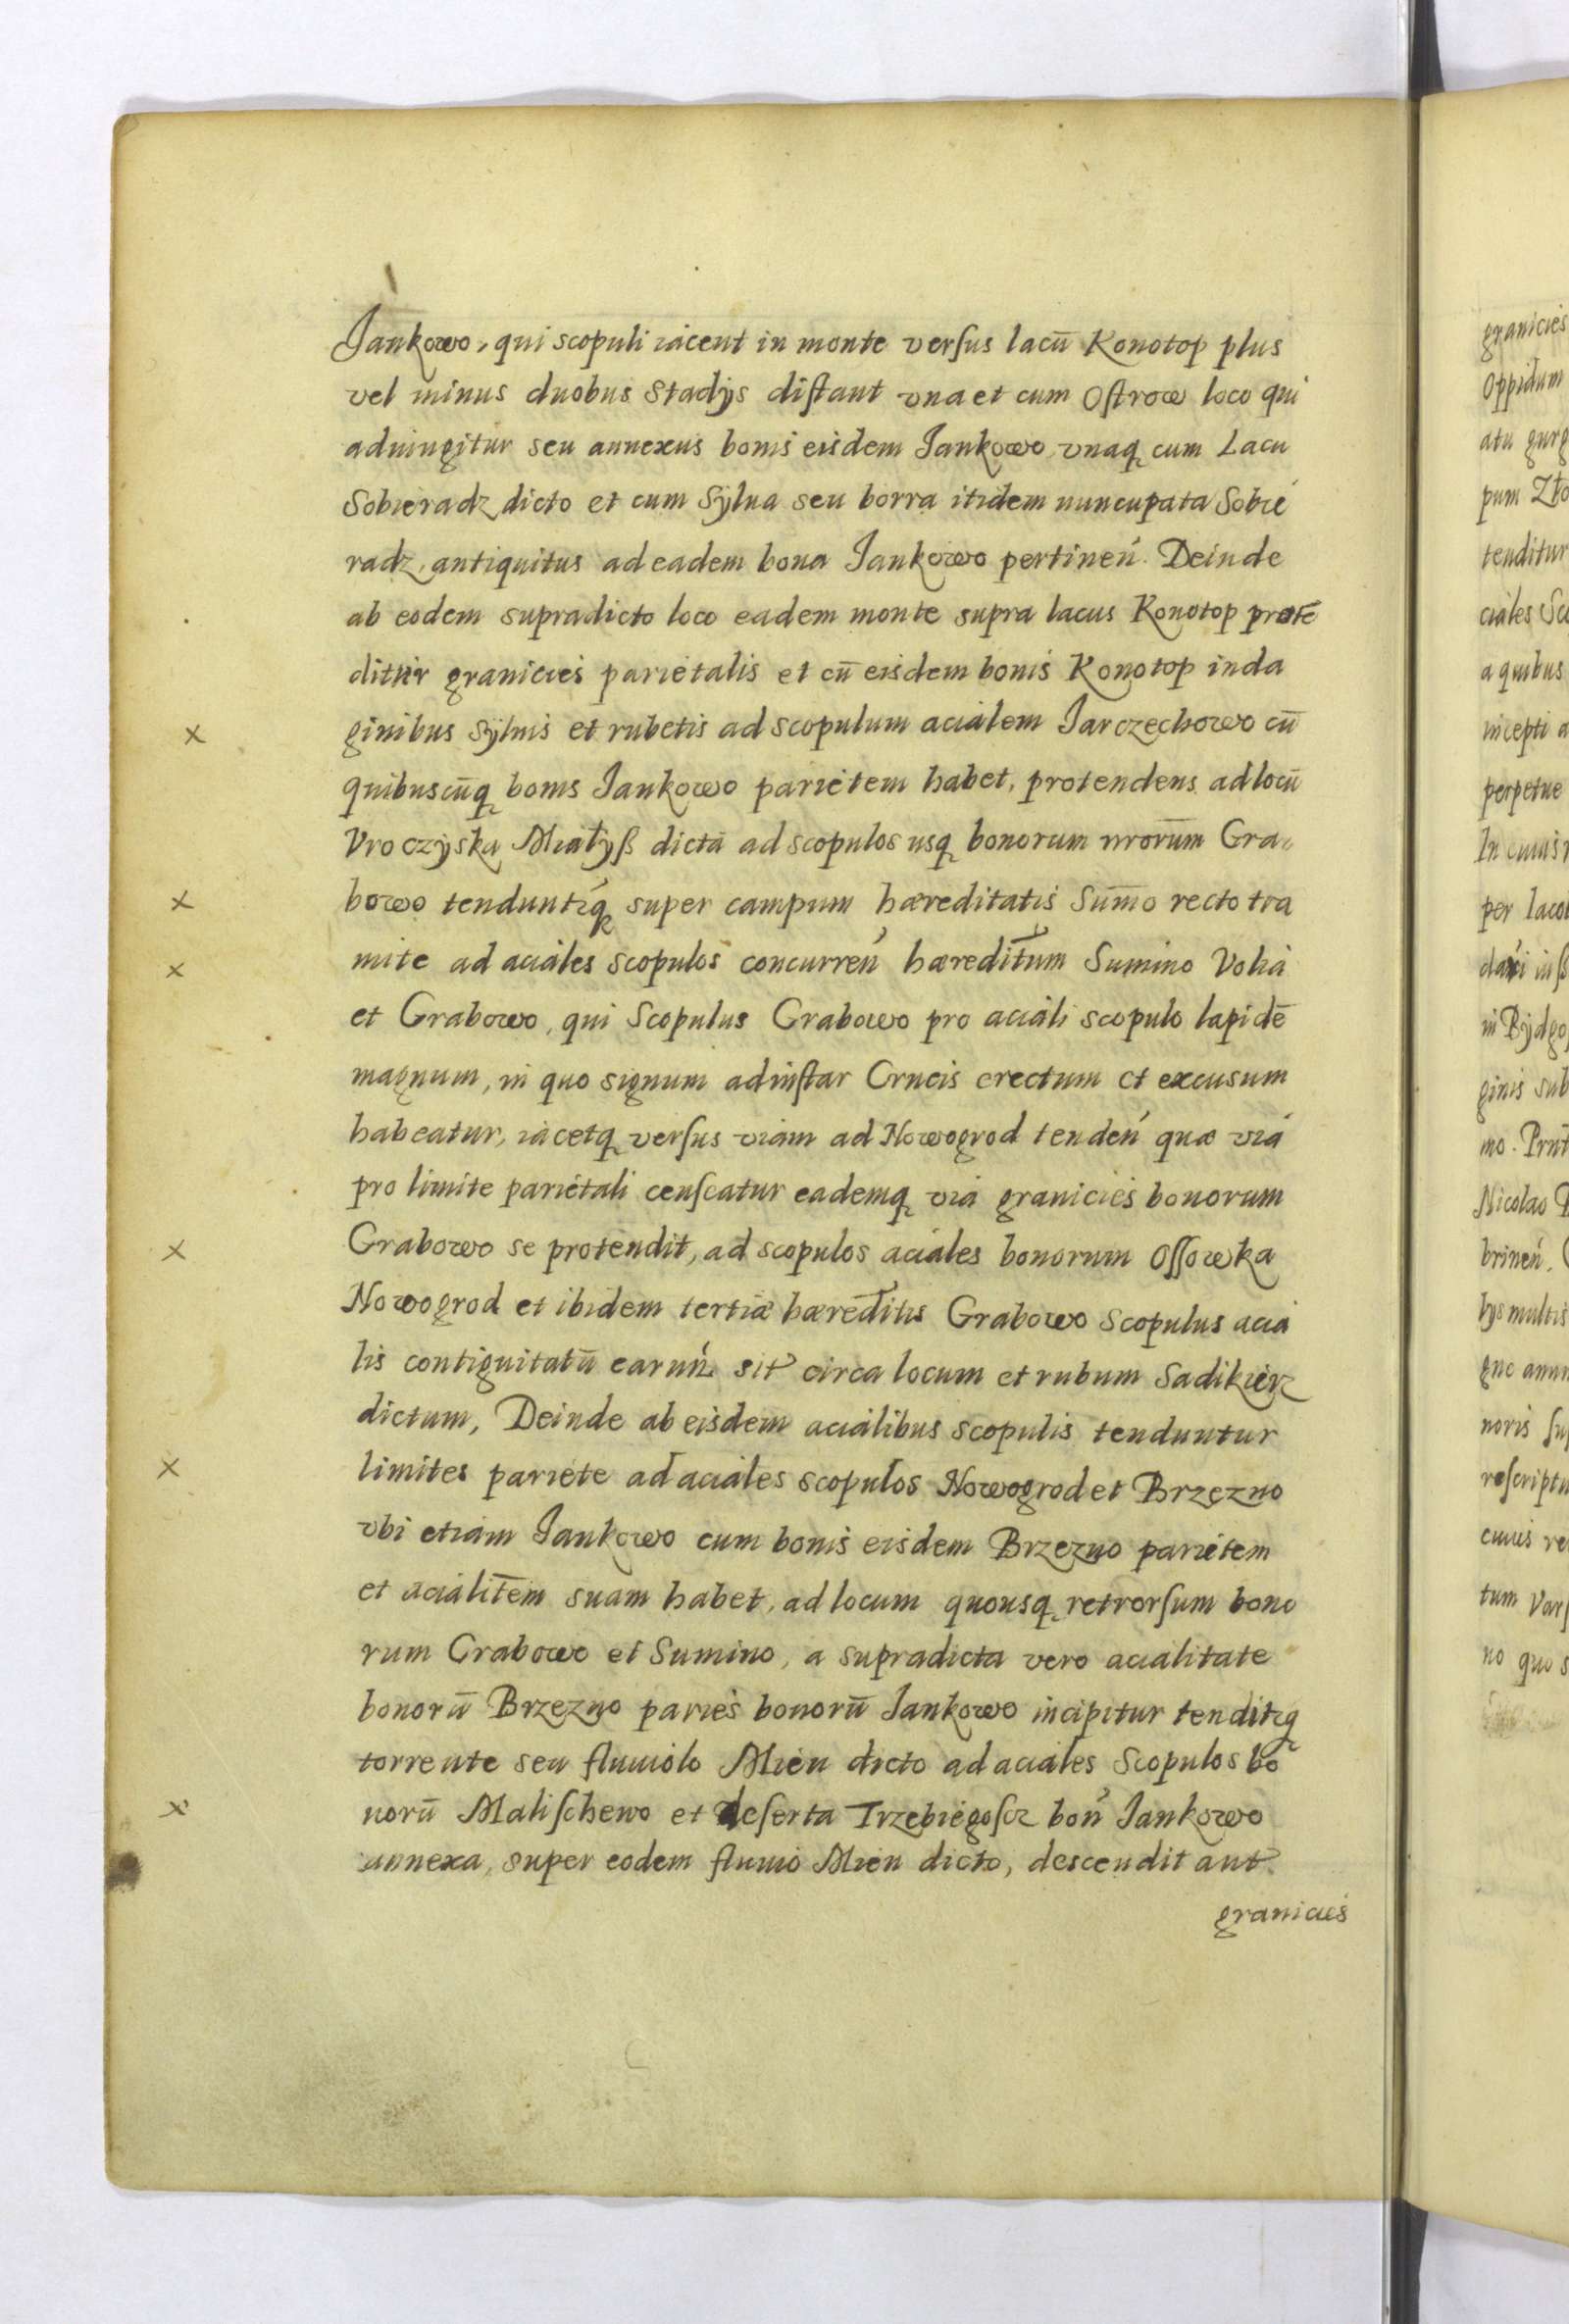 Jankowo, qui scopuli iacent in monte versus lacū Konotop plus
vel minus duobus Stadÿs distant vna et cum Ostrow loco qui
adiungitur seu annexus bonis eisdem Jankowo, vnaq cum Lacu
Sobieradz dicto et cum Sÿlua seu borra itidem nuncupata Sobie
radz, antiquitus ad eadem bona Jankowo pertineń. Deinde
ab eodem supradicto loco eadem monte supra lacus Konotop protē
ditur granicies parietalis et cū eisdem bonis Konotop inda
ginibus Sÿluis et rubetis ad scopulum acialem Jarczechowo cū
quibuscūq bonis Jankowo parietem habet, protendens ad locū
Vroczÿska Miałyß dicta ad scopulos usq bonorum nrorūm Gra-
bowo tenduntq super campum hæreditatis Sūmo recto tra
mite ad aciales scopulos concurreń hæreditūm Sumino Volia
et Grabowo, qui Scopulus Grabowo pro aciali scopulo lapidē
magnum, in quo signum ad instar Crucis erectum et excusum
habeatur, iacetq versus viam ad Nowogrod tendeń quæ via
pro limite parietali censeatur eademq via granicies bonorum
Grabowo se protendit, ad scopulos aciales bonorum Ossowka
Nowogrod et ibidem tertiæ hæreditis Grabowo Scopulus acia
lis contiguitatū earun sit circa locum et rubum Sadikierz
dictum, Deinde ab eisdem acialibus scopulis tenduntur
limites pariete ad aciales scopulos Nowogrod et Brzezno
vbi etiam Jankowo cum bonis eisdem Brzezno parietem
et acialitēm suam habet, ad locum quousq retrorsum bono
rum Grabowo et Sumino, a supradicta vero acialitate
bonorū Brzezno paries bonorū Jankowo incipitur tenditq
torrente seu fluuiolo Mień dicto ad aciales Scopulos bo
norū Malischewo et deserta Trzebiegoscz boń Jankowo
annexa, super eodem fluuio Mień dicto, descendit aut
granicies
granicies
Oppidum
pum Zło
tenditur
ciales
a quibus
incepti a
perpetue
per
in
ginis sub
mo.
Nicolao
brineń.
multis
noris
cuius
tum
no quo